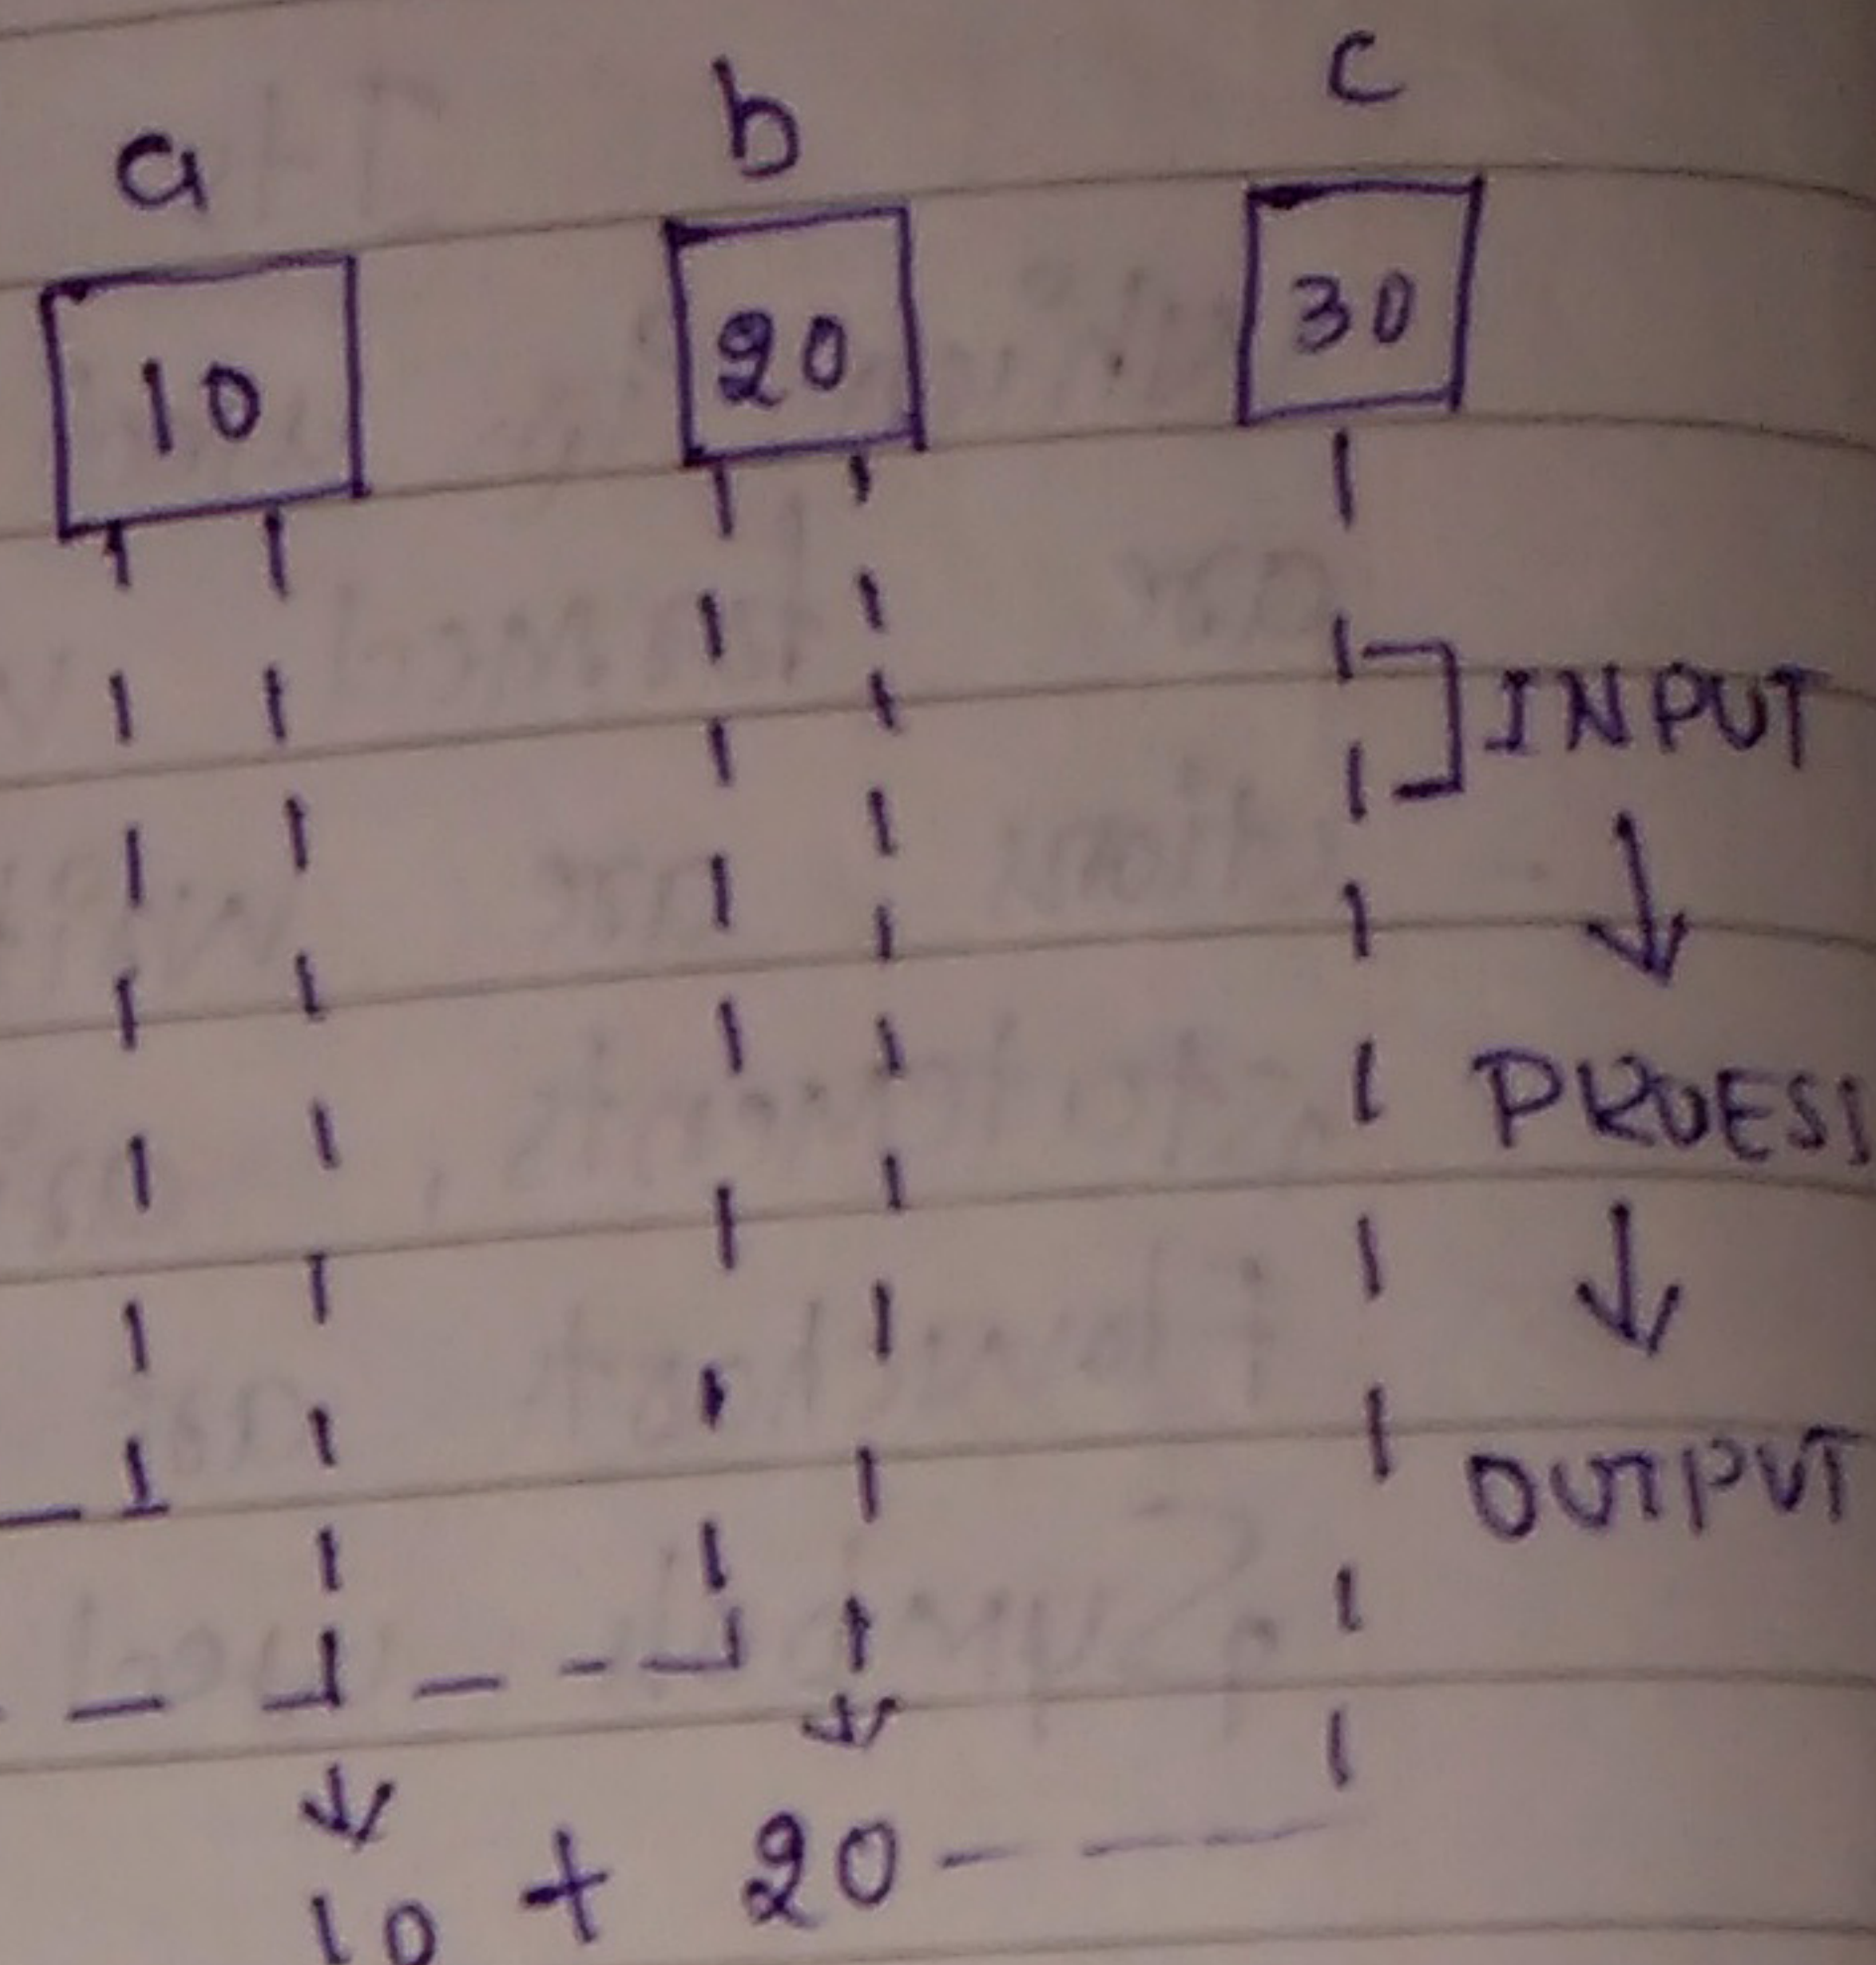 a b c
10 20 30
INPUT
PROESS
OUTPUT
10 + 20